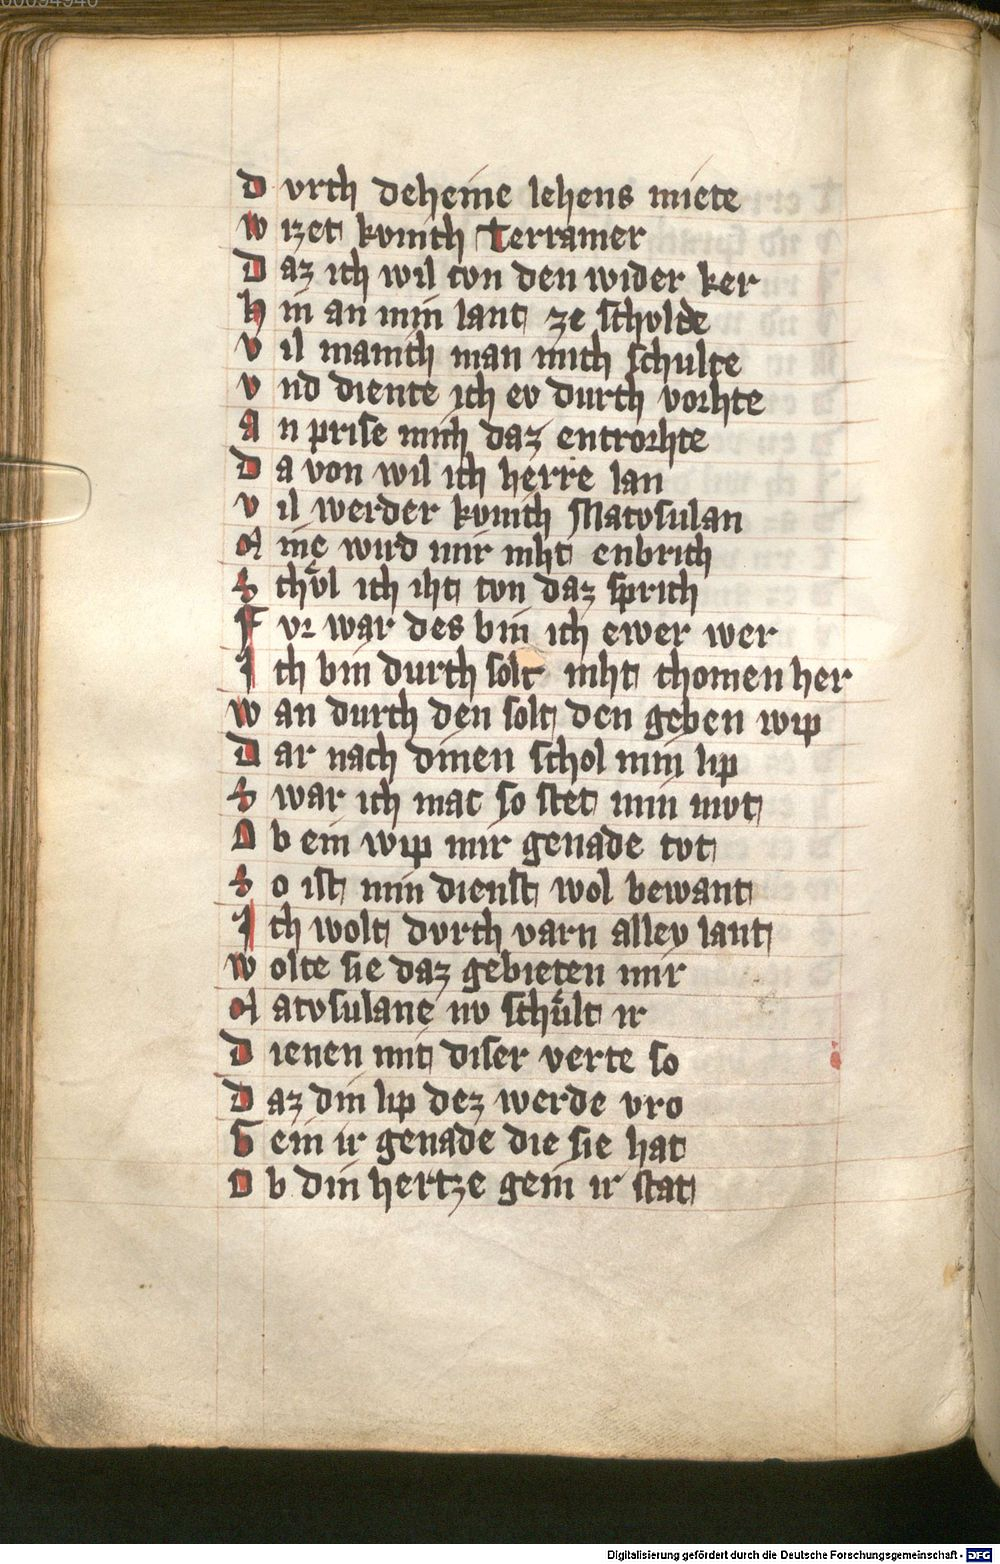 Durch deheine lehens miete
Wizet kvnich Terramer
Daz ich wil tvn den wider ker
Hin an min lant ze scholde
Vil manich man mich schulte
Vnd diente ich ev durch vorhte
An prise mich daz entworhte
Da von wil ich herre lan
Vil werder kvnich Matvsulan
Mine wird mir niht enbrich
Schvͦl ich iht tvn daz sprich
Fvr war des bin ich ewer wer
Ich bin durch solt niht chomen her
Wan durch den solt den geben wip
Dar nach dinen schol min lip
Swar ich mac so stet min mvt
Ob ein wip mir genade tvt
So ist min dienst wol bewant
Ich wolt dvrch varn allev lant
Wolte sie daz gebieten mir
Matvsulane nv schuͤlt ir
Dienen mit diser verte so
Daz din lip dez werde vro
Hein ir genade die sie hat
Ob din hertze gein ir stat
Digitalisierung gefördert durch die Deutsche Forschungsgemeinschaft - DFG